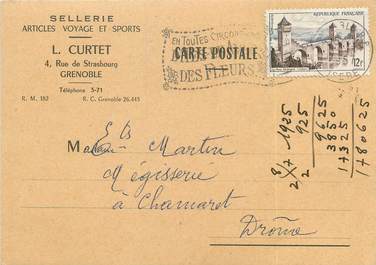 SELLERIE
ARTICLES VOYAGE ET SPORTS
L. CURTET
4, Rue de Strasbourg
GRENOBLE
Téléphone 3-71
R. M. 182 R. C. Grenoble 26.445
EN TOUTES CIRCONS
CARTE POSTALE
DES FLEURS
RÉPUBLIQUE FRANÇAISE
12F
ISERE
Ets
M Martin
Mégisserie
à Chamaret
Drôme
1925
925
9625
3850
17325
1780625